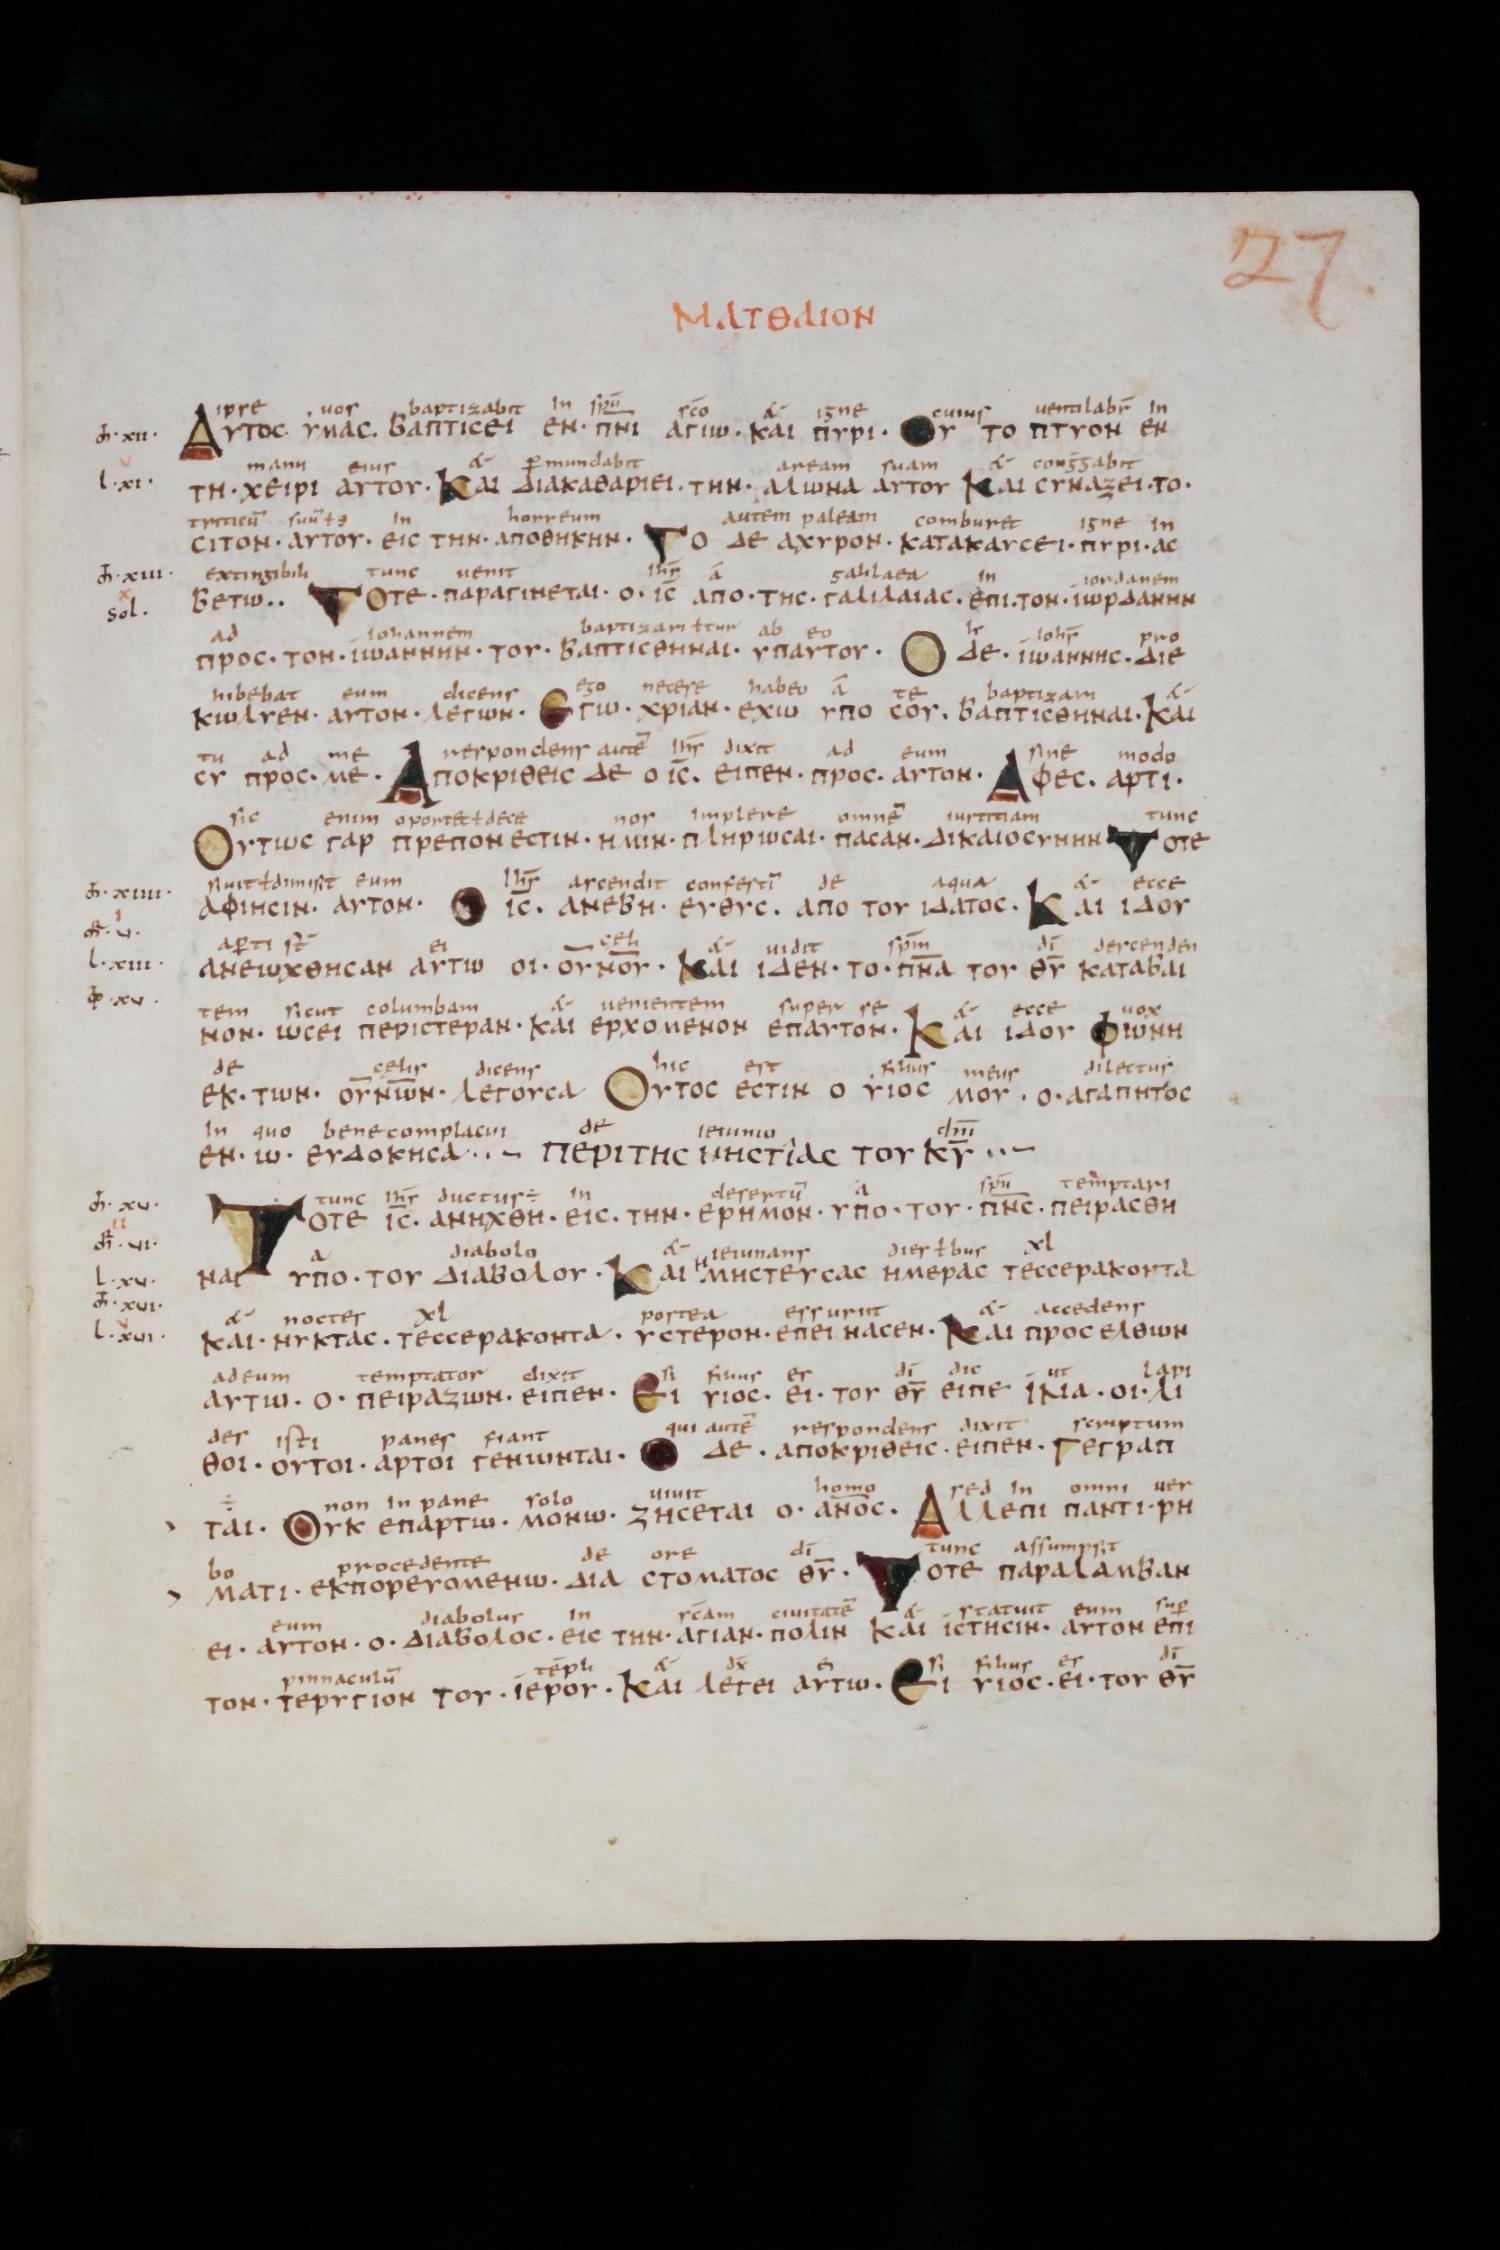 27.
ΜΑΤΘΑΙΟΝ
ipse uos baptizabit In sp̅u s̅c̅o & igne cuius uentilabr̅ In
ΑΥΤΟC ΥΜΑC· ΒΑΠΤΙCΕΙ ΕΝ· Π̅Ν̅Ι ΑΓΙΩ· ΚΑΙ ΠΥΡΙ· ΟΥ ΤΟ ΠΤΥΟΝ ΕΝ
manu eius & p̅mundabit aream suam & conggabit
ΤΗ· ΧΕΙΡΙ ΑΥΤΟΥ· ΚΑΙ ΔΙΑΚΑΘΑΡΙΕΙ· ΤΗΝ· ΑΛΩΝΑ ΑΥΤΟΥ ΚΑΙ CΥΝΑΞΕΙ· ΤΟ·
triticu̅ suu̅ In horreum autem paleam comburet igne In
CΙΤΟΝ· ΑΥΤΟΥ· ΕΙC ΤΗΝ· ΑΠΟΘΗΚΗΝ· ΤΟ ΔΕ ΑΧΥΡΟΝ· ΚΑΤΑΚΑΥCΕΙ· ΠΥΡΙ· ΑC
extingibili tunc uenit ih̅s a̅ galilaea in iordanem
ΒΕΤΩ·· ΤΟΤΕ· ΠΑΡΑΓΙΝΕΤΑΙ· Ο· Ι̅C̅ ΑΠΟ· ΤΗC· ΓΑΛΙΛΑΙΑC· ΕΠΙ· ΤΟΝ· ΙΩΡΔΑΝΗΝ
ad iohannem baptizari ł tur ab eo is ioh̅s pro
ΠΡΟC· ΤΟΝ· ΙΩΑΝΝΗΝ· ΤΟΥ· ΒΑΠΤΙCΘΗΝΑΙ· ΥΠΑΥΤΟΥ· Ο ΔΕ· ΙΩΑΝΝΗC· ΔΙΕ
hibebat eum dicens ego necese habeo a̅ te baptizari &
ΚΩΛΥΕΝ· ΑΥΤΟΝ· ΛΕΓΩΝ· ΕΓΩ· ΧΡΙΑΝ· ΕΧΩ ΥΠΟ CΟΥ· ΒΑΠΤΙCΘΗΝΑΙ· ΚΑΙ
tu ad me respondens aute̅ ih̅s dixit ad eum sine modo
CΥ ΠΡΟC· ΜΕ· ΑΠΟΚΡΙΘΕΙC ΔΕ Ο Ι̅C̅· ΕΙΠΕΝ· ΠΡΟC· ΑΥΤΟΝ· ΑΦΕC· ΑΡΤΙ·
sic enim oportet ł dece nos Implere omne̅ iustitiam tunc
ΟΥΤΩC ΓΑΡ ΠΡΕΠΟΝ ΕCΤΙΝ· ΗΜΙΝ· ΠΛΗΡΩCΑΙ· ΠΑCΑΝ· ΔΙΚΑΙΟCΥΝΗΝ ΤΟΤΕ
siuit ł dimisit eum ih̅s ascendit confesti̅ de aqua & ecce
ΑΦΙΗCΙΝ· ΑΥΤΟΝ· Ο Ι̅C̅· ΑΝΕΒΗ· ΕΥΘΥC· ΑΠΟ ΤΟΥ ΙΔΑΤΟC· ΚΑΙ ΙΔΟΥ
ap̅ti s̅t̅ ei celi & uidit sp̅m d̅i descenden
ΑΝΕΩΧΘΗCΑΝ ΑΥΤΩ ΟΙ· Ο̅Υ̅Ν̅Ο̅Υ̅· ΚΑΙ ΙΔΕΝ· ΤΟ· Π̅Ν̅Α ΤΟΥ Θ̅Υ̅ ΚΑΤΑΒΑΙ
tem sicut columbam & uenientem super se & ecce uox
ΝΟΝ· ΩCΕΙ ΠΕΡΙCΤΕΡΑΝ· ΚΑΙ ΕΡΧΟΜΕΝΟΝ ΕΠΑΥΤΟΝ· ΚΑΙ ΙΔΟΥ ΦΩΝΗ
de celis dicens hic est filius meus dilectus
ΕΚ· ΤΩΝ· Ο̅Υ̅Ν̅Ω̅Ν· ΛΕΓΟΥCΑ ΟΥΤΟC ΕCΤΙΝ Ο ΥΙΟC ΜΟΥ· Ο· ΑΓΑΠΗΤΟC
In quo bene complacui de ieiunio d̅n̅i
ΕΝ· Ω· ΕΥΔΟΚΗCΑ·· – ΠΕΡΙ ΤΗC ΝΗCΤΙΑC ΤΟΥ Κ̅Υ̅··–
tunc ih̅s ductus÷ in desertu̅ a sp̅u temptari
ΤΟΤΕ Ι̅C̅· ΑΝΗΧΘΗ· ΕΙC· ΤΗΝ· ΕΡΗΜΟΝ· ΥΠΟ· ΤΟΥ· Π̅Ν̅C· ΠΕΙΡΑCΘΗ
a diabolo & ieiunans dies ł bus xl
ΝΑΙ ΥΠΟ· ΤΟΥ ΔΙΑΒΟΛΟΥ· ΚΑΙ ΝΜΗCΤΕΥCΑC ΗΜΕΡΑC ΤΕCCΕΡΑΚΟΝΤΑ
& noctes xl postea essuriit & accedens
ΚΑΙ· ΝΥΚΤΑC· ΤΕCCΕΡΑΚΟΝΤΑ· ΥCΤΕΡΟΝ· ΕΠΕΙΝΑCΕΝ· ΚΑΙ ΠΡΟCΕΛΘΩΝ
ad eum temptator dixit si filius es d̅i dic ut lapi
ΑΥΤΩ· Ο· ΠΕΙΡΑΖΩΝ· ΕΙΠΕΝ· ΕΙ ΥΙΟC· ΕΙ· ΤΟΥ Θ̅Υ̅ ΕΙΠΕ ΙΝΑ· ΟΙ· ΛΙ
des isti panes fiant qui aute̅ respondens dixit scriptum
ΘΟΙ· ΟΥΤΟΙ· ΑΡΤΟΙ ΓΕΝΩΝΤΑΙ· Ο ΔΕ· ΑΠΟΚΡΙΘΕΙC· ΕΙΠΕΝ· ΓΕΓΡΑΠ
÷ non In pane solo uiuit homo sed In omni uer
ΤΑΙ· ΟΥΚ ΕΠΑΡΤΩ· ΜΟΝΩ· ΖΗCΕΤΑΙ Ο· Α̅Ν̅Ο̅C· ΑΛΛΕΠΙ ΠΑΝΤΙ· ΡΗ
bo procedente de ore d̅i tunc assumpsit
ΜΑΤΙ· ΕΚΠΟΡΕΥΟΜΕΝΩ· ΔΙΑ CΤΟΜΑΤΟC Θ̅Υ̅· ΤΟΤΕ ΠΑΡΑΛΑΜΒΑΝ
eum diabolus in s̅c̅am ciuitate̅ & statuit eum sup̅
ΕΙ· ΑΥΤΟΝ· Ο· ΔΙΑΒΟΛΟC· ΕΙC ΤΗΝ· ΑΓΙΑΝ· ΠΟΛΙΝ ΚΑΙ ΙCΤΗCΙΝ· ΑΥΤΟΝ ΕΠΙ
pinnaculu̅ te̅pli & dx̅ ei si filius es d̅i
ΤΟΝ· ΤΕΡΥΓΙΟΝ ΤΟΥ· ΙΕΡΟΥ· ΚΑΙ ΛΕΓΕΙ ΑΥΤΩ· ΕΙ ΥΙΟC· ΕΙ· ΤΟΥ Θ̅Υ̅
l·xi·
sol·
l·xiii·
l·xv·
l·xvi·